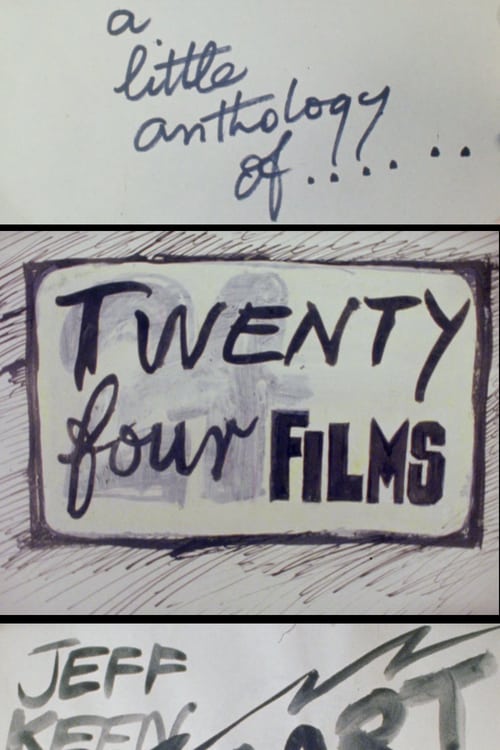 a
little
anthology
of.......
TWENTY
four FILMS
JEFF
KEEN ART